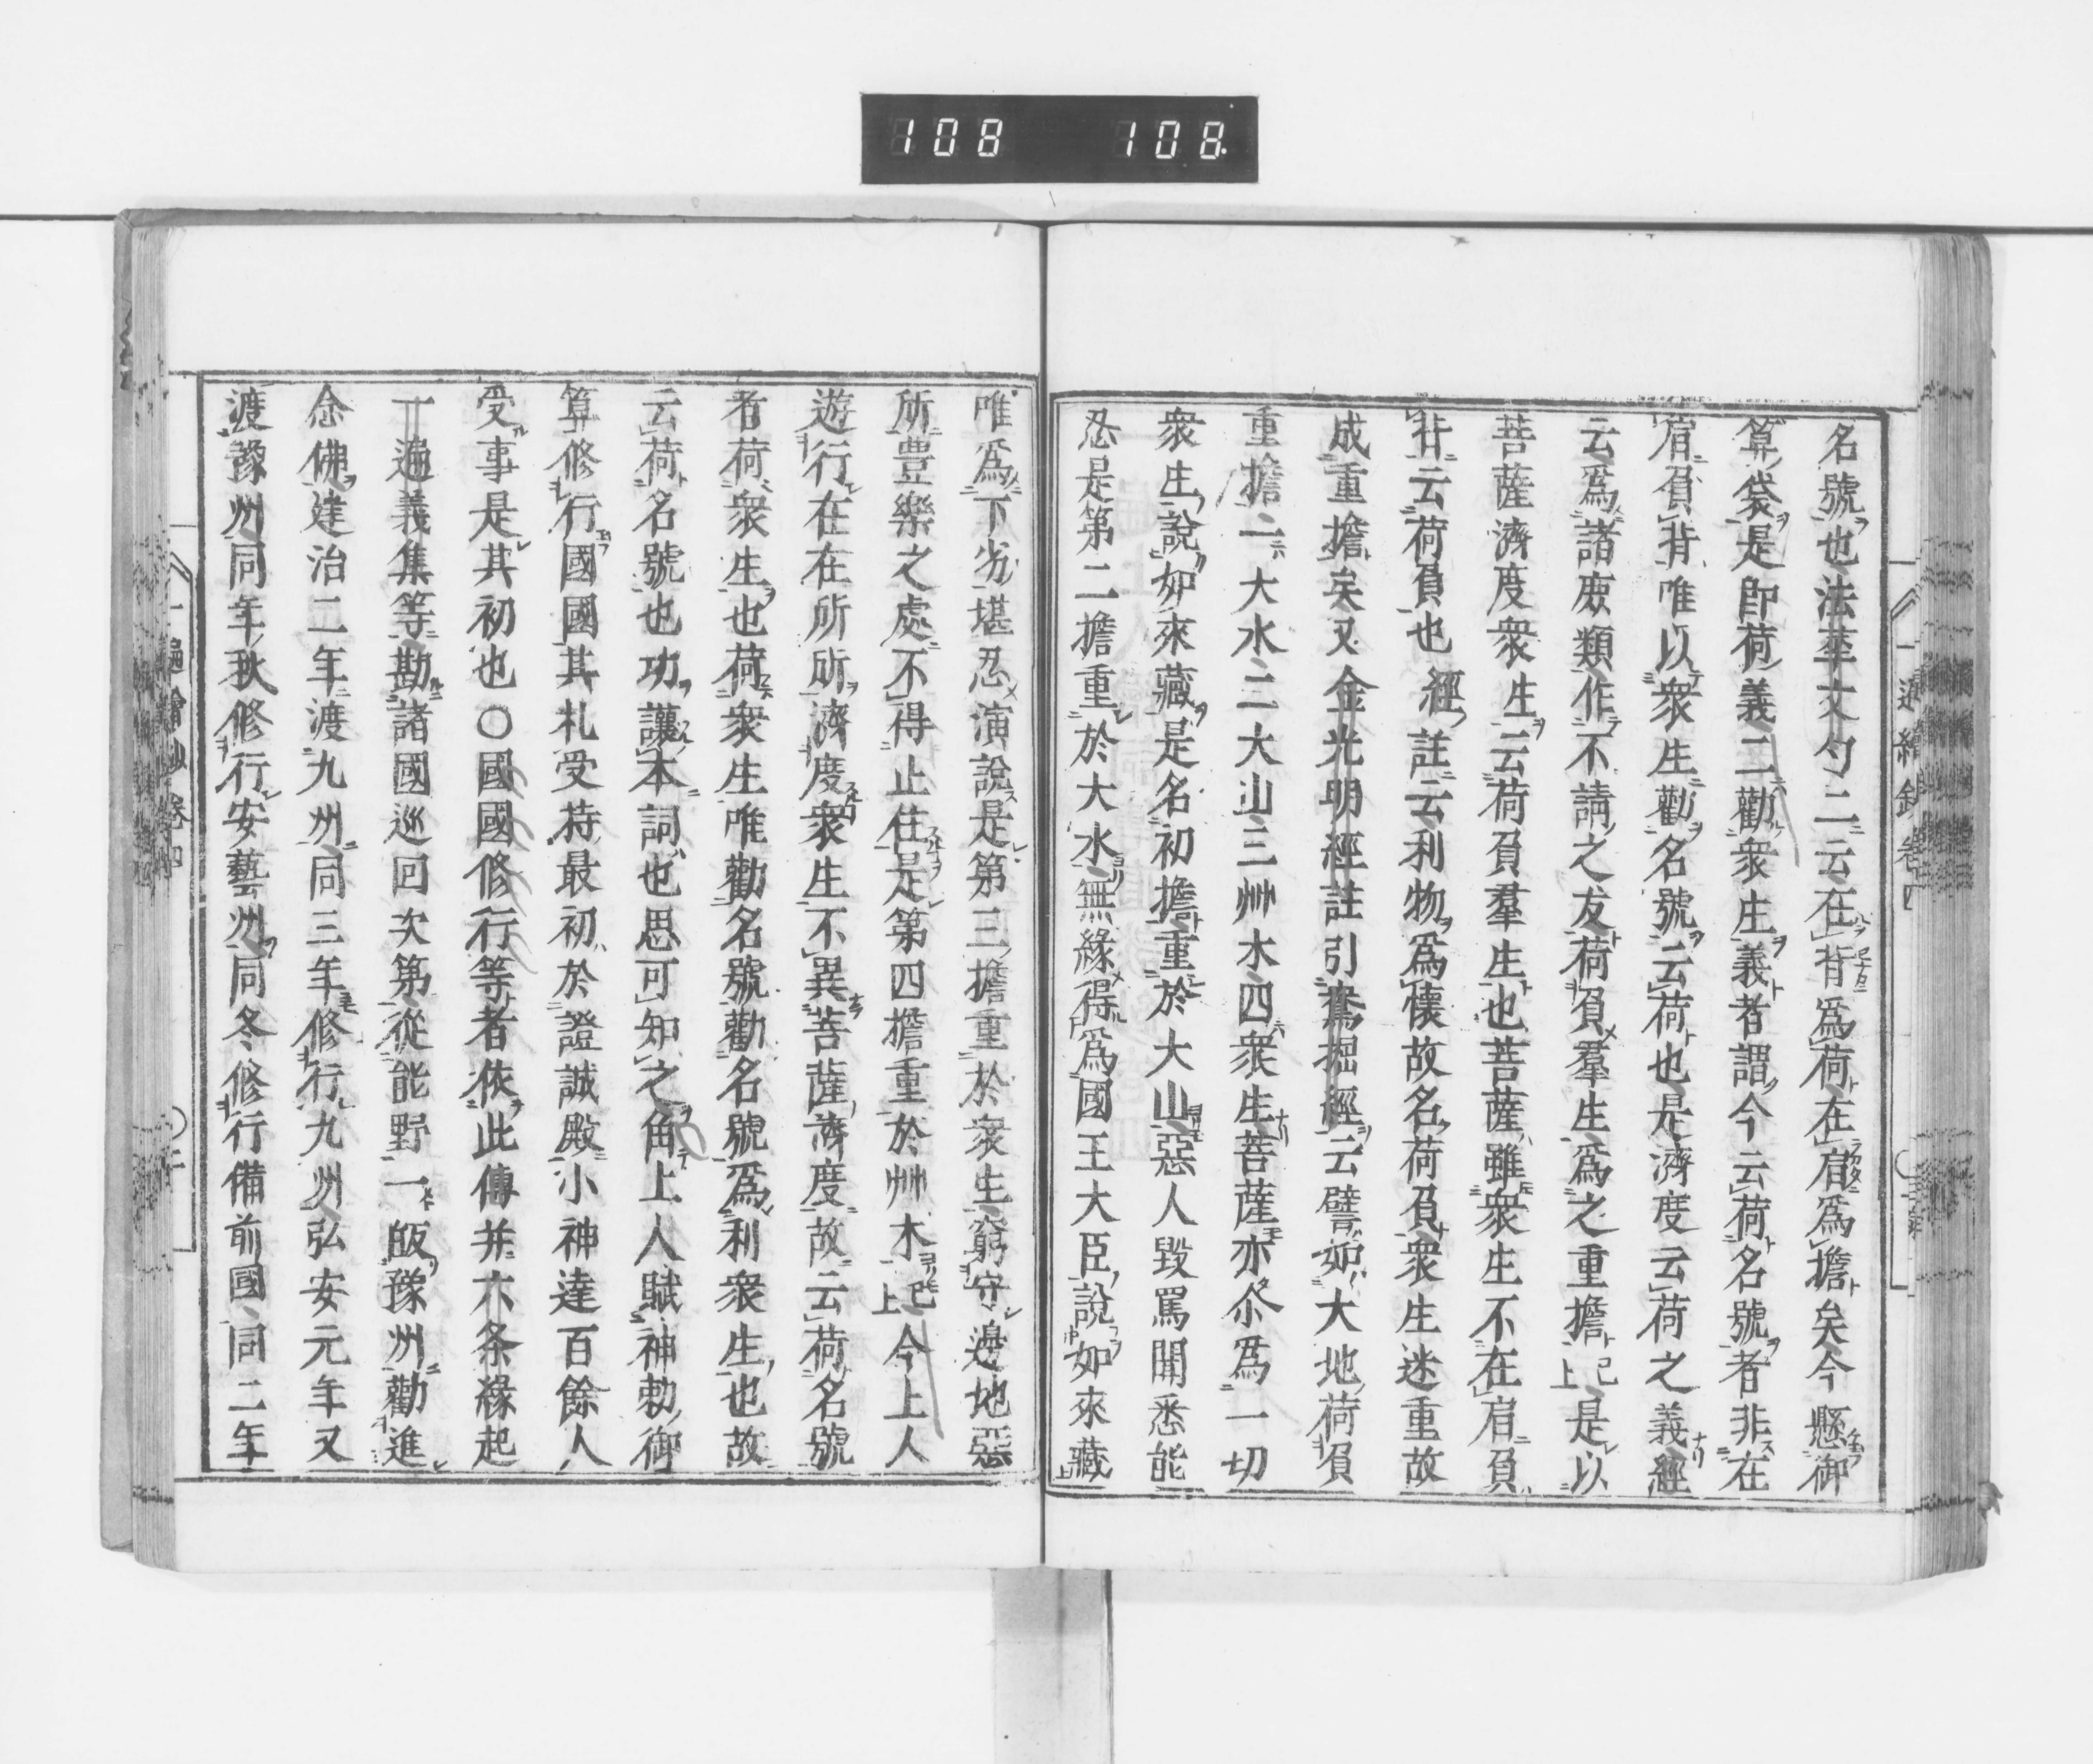 108 108
名號也法華文句二云在背爲荷在肩爲擔矣今懸御
算袋是卽荷義二勸衆生義者謂今云荷名號者非在
肩負背唯以衆生勸名號云荷也是濟度云荷之義經
云爲諸庶類作不請之友荷負羣生爲之重擔已上是以
菩薩濟度衆生云荷負羣生也菩薩雖衆生不在肩負
背云荷負也經註云利物爲懷故名荷負衆生迷重故
成重擔矣又金光明經註引鴦掘經云譬如大地荷負
重擔一大水二大山三艸木四衆生菩薩亦尒爲一切
衆生說如來藏是名初擔重於大山惡人毀罵聞悉能
忍是第二擔重於大水無緣得爲國王大臣說如來藏
唯爲下劣堪忍演說是第三擔重於衆生窮守邊地惡
所豊樂之處不得止住是第四擔重於艸木已上今上人
遊行在在所所濟度衆生不異菩薩濟度故云荷名號
者荷衆生也荷衆生唯勸名號勸名號爲利衆生也故
云荷名號也功讓本詞也思可知之角上人賦神勅御
算修行國國其札受持最初於證誠殿小神達百餘人
受事是其初也〇國國修行等者依此傳并六条緣起
一遍義集等勘諸國巡回次第從能野一皈豫州勸進
念佛建治二年渡九州同三年修行九州弘安元年又
渡豫州同年秋修行安藝州同冬修行備前國同二年